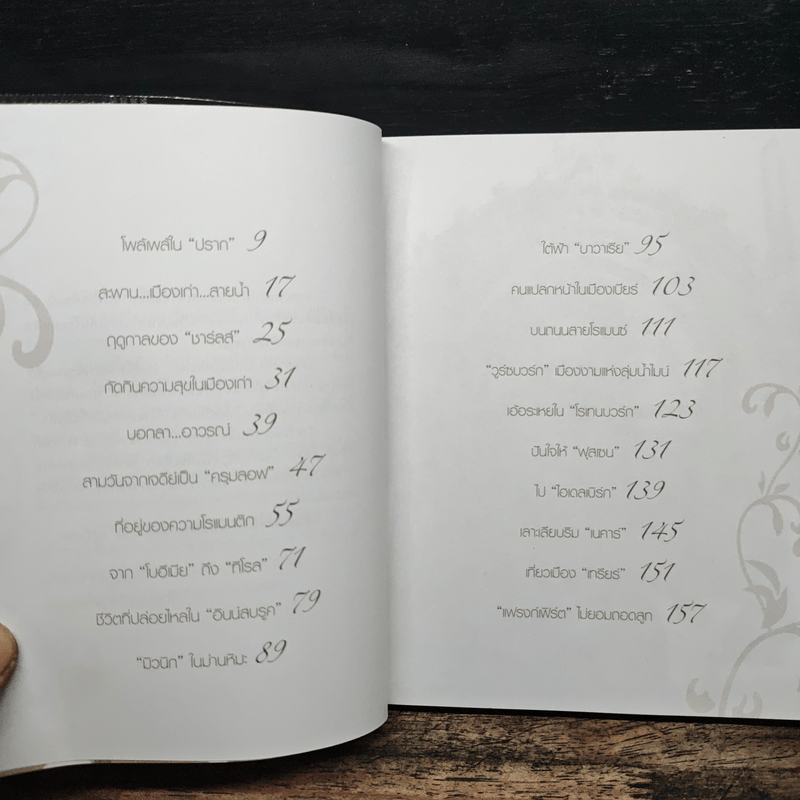 โพล้เพล้ใน “ปราก” 9
สะพาน...เมืองเก่า...สายน้ำ 17
ฤดูกาลของ “ชาร์ลส์” 25
กัดกินความสุขในเมืองเก่า 31
บอกลา...อาวรณ์ 39
สามวันจากเจดีย์เป็น “ครุมลอฟ” 47
ที่อยู่ของความโรแมนติก 55
จาก “โบฮีเมีย” ถึง “ทีโรล” 71
ชีวิตที่ปล่อยไหลใน “อินน์สบรูค” 79
“มิวนิก” ในม่านหิมะ 89
ใต้ฟ้า “บาวาเรีย” 95
คนแปลกหน้าในเมืองเบียร์ 103
บนถนนสายโรแมนซ์ 111
“วูร์ซบวร์ก” เมืองงามแห่งลุ่มน้ำไมน์ 117
เอ้อระเหยใน “โรเทนบวร์ก” 123
ปันใจให้ “ฟุสเซน” 131
ไป “ไฮเดลเบิร์ก” 139
เลาะเลียบริม “เนคาร์” 145
เที่ยวเมือง “เทรียร์” 151
“แฟรงก์เฟิร์ต” ไม่ยอมถอดลูท 157